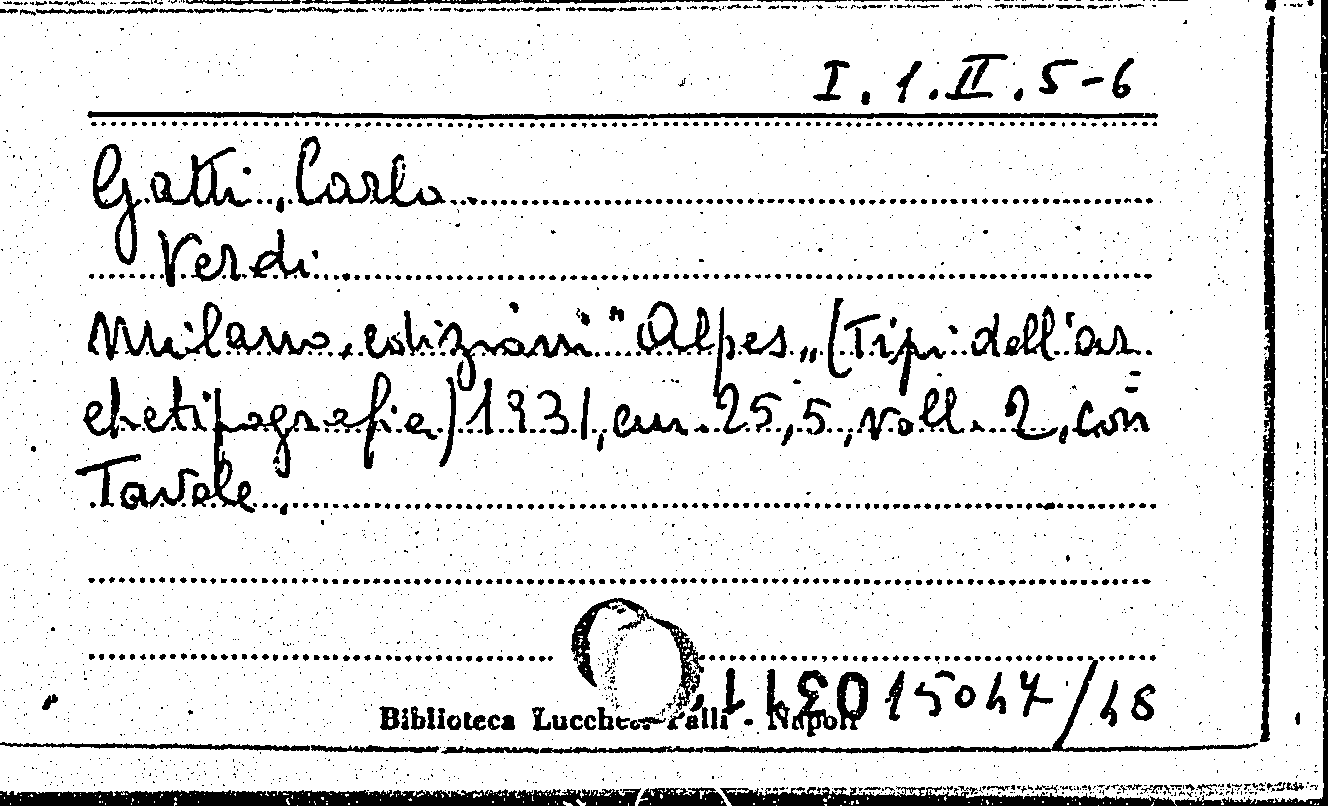 I.1.II.5-6
Gatti, Carlo.
Verdi.
Milano, edizioni "Alpes„ (Tipi dell'ar=
chetipografia) 1931, cm. 25,5, voll. 2, con
Tavole.
15047/48
Biblioteca Lucchesi Palli - Napoli